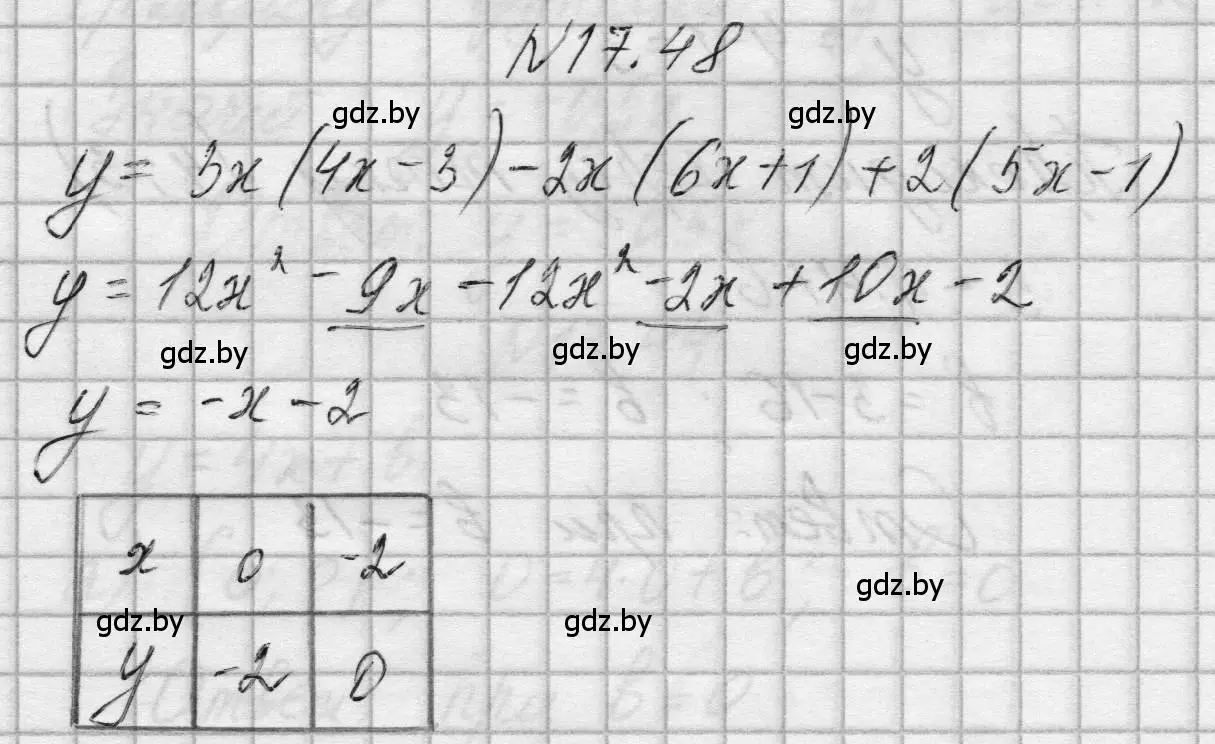 №17.48
gdz.by gdz.by
y = 3x(4x-3)-2x(6x+1)+2(5x-1)
y = 12x² - 9x - 12x² - 2x + 10x - 2
gdz.by gdz.by gdz.by
y = -x - 2
x 0 -2
gdz.by gdz.by gdz.by
y -2 0